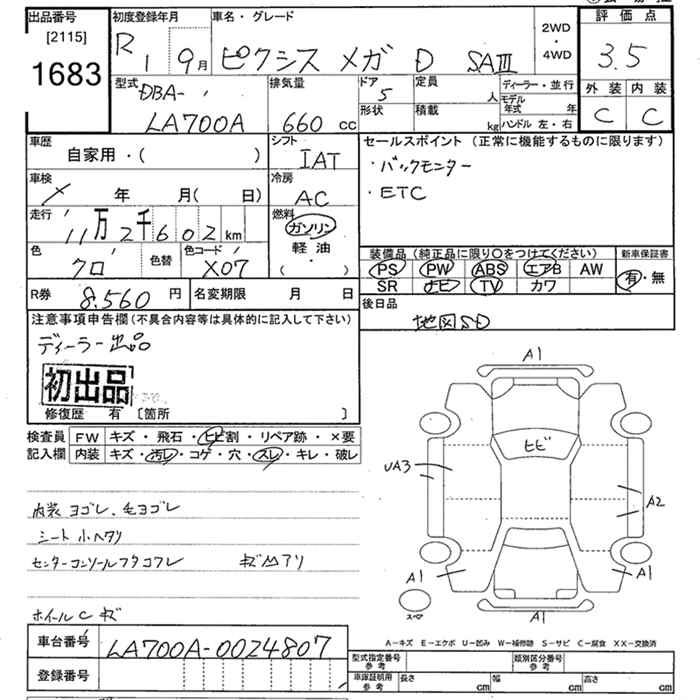 出品番号
[2115]
1683
初度登録年月
R 1 9月
車名・グレード
ピクシス メガ D SAⅢ
2WD
・
4WD
評価点
3.5
外装 内装
C C
型式
DBA-
LA700A
排気量
660 cc
ドア
5
形状
定員
人
積載
kg
ディーラー・並行
モデル年式 年
ハンドル 左・右
車歴
自家用・( )
シフト
IAT
車検
年 月( 日)
冷房
AC
走行
11万2千602 km
燃料
ガソリン
軽油
( ・ )
色
クロ
色替
色コード
X07
R券 8.560 円
名変期限 月 日
セールスポイント (正常に機能するものに限ります)
・バックモニター
・ETC
装備品(純正品に限り〇をつけてください)
新車保証書
PS PW ABS エアB AW
SR ナビ TV カワ
有・無
後日品
地図SD
注意事項申告欄(不具合内容等は具体的に記入して下さい)
ディーラー出品
初出品
修復歴 有 〔箇所 〕
検査員記入欄
FW キズ・飛石・ヒビ割・リペア跡・×要
内装 キズ・汚レ・コゲ・穴・スレ・キレ・破レ
内装ヨゴレ、毛ヨゴレ
シート小ヘタリ
センターコンソールフタコワレ キズ凹アリ
ホイールC キズ
A1
ヒビ
UA3
A2
A1
A1
A1
スペア
A-キズ E-エクボ U-凹み W-補修跡 S-サビ C-腐食 XX-交換済
車台番号
LA700A-0024807
登録番号
型式指定番号参考
類別区分番号参考
車庫証明用参考
長さ cm
幅 cm
高さ cm